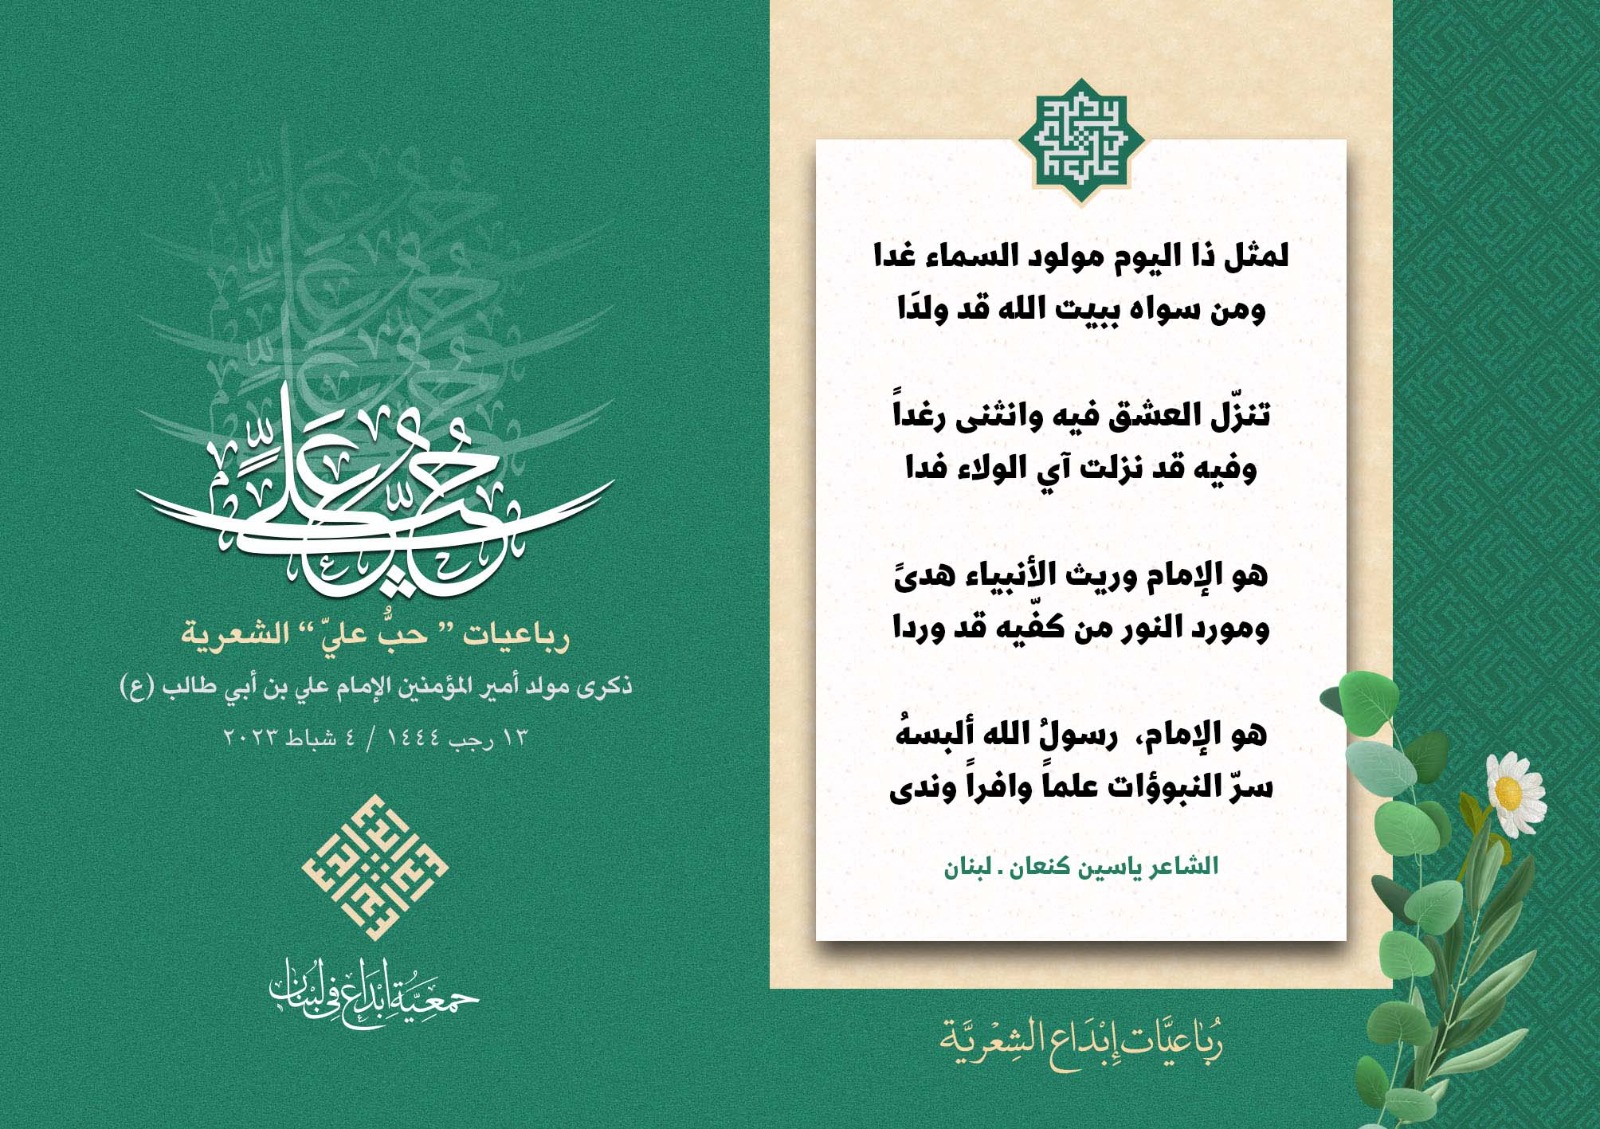 لمثل ذا اليوم مولود السماء غدا
ومن سواه ببيت الله قد ولدَا
تنزّل العشق فيه وانثنى رغداً
وفيه قد نزلت آي الولاء فدا
هو الإمام وريث الأنبياء هدىً
ومورد النور من كفّيه قد وردا
هو الإمام، رسولُ الله ألبسهُ
سرّ النبوؤات علماً وافراً وندى
الشاعر ياسين كنعان . لبنان
رُبَاعيَّات إِبْدَاع الشِعْريَّة
حُبُّ عَلِيٍّ
رباعيات ” حبُّ عليّ “ الشعرية
ذكرى مولد أمير المؤمنين الإمام علي بن أبي طالب (ع)
١٣ رجب ١٤٤٤ / ٤ شباط ٢٠٢٣
جمعيَّة إبْدَاع في لبْنان